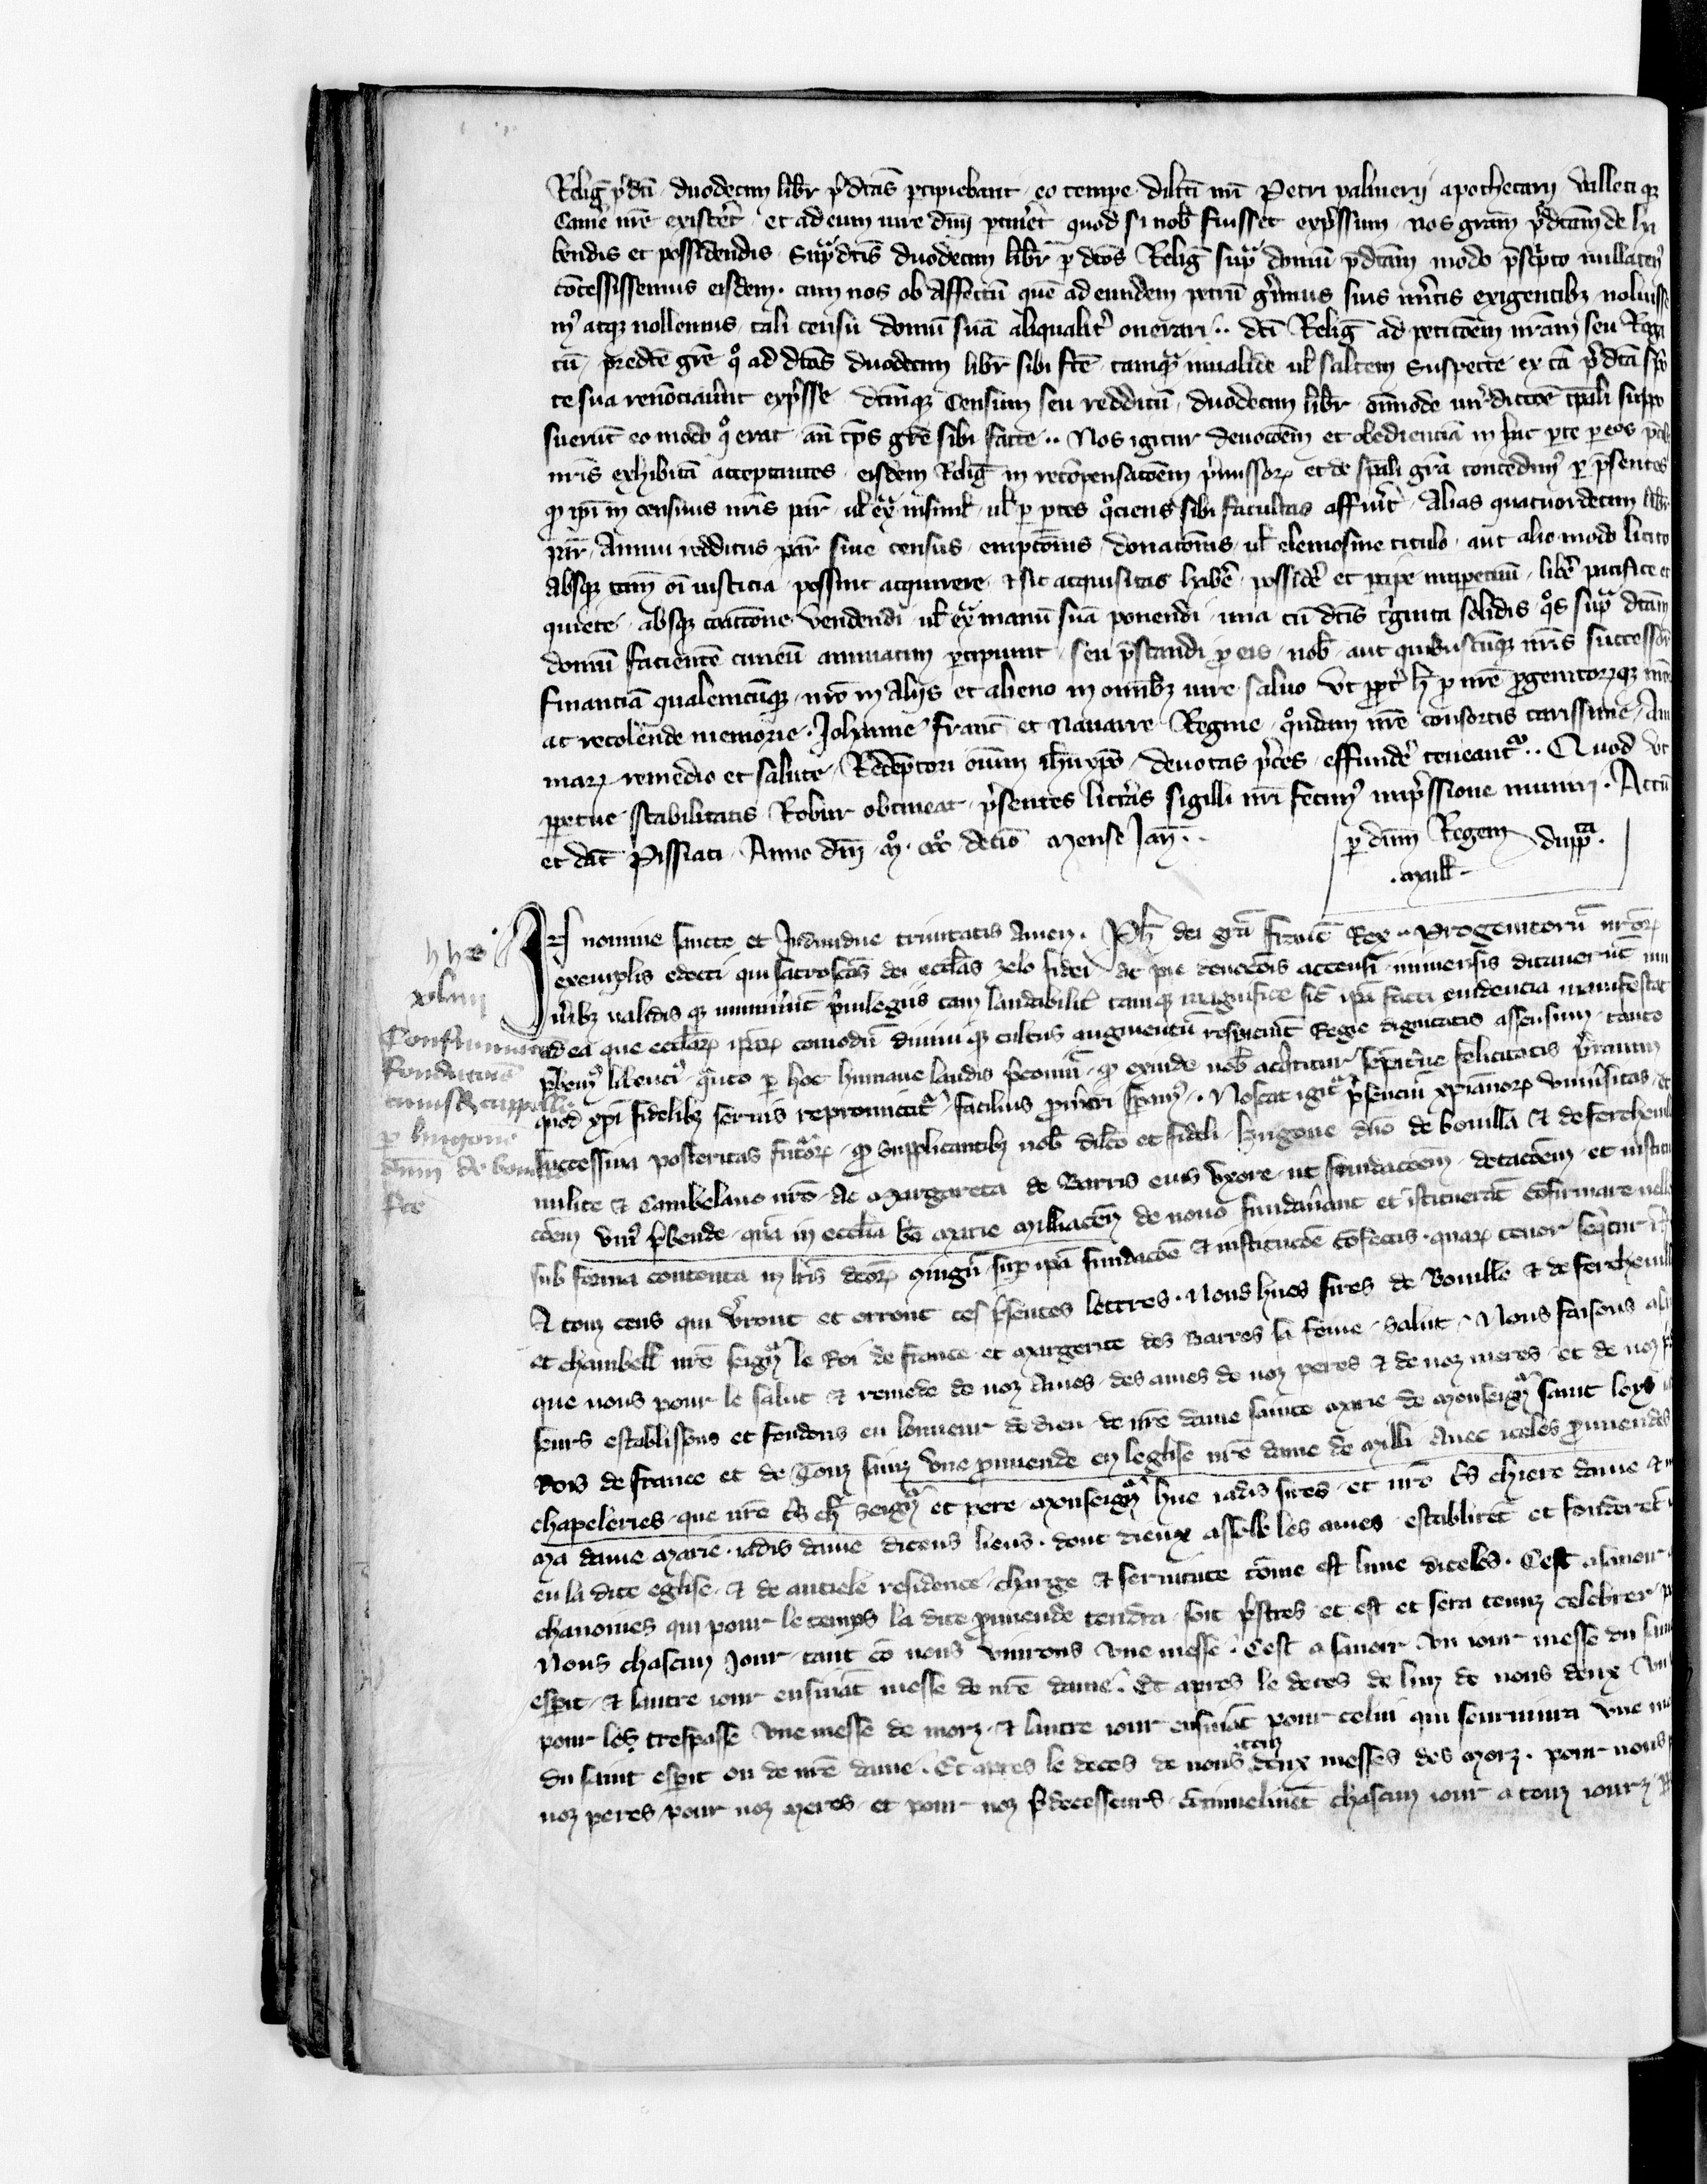 Relig̃ p̃dc̃i duodecim libr̃ p̃dcãs ꝑcipiebant eo tempe dilc̃ti nr̃i Petri valinerij apothecarij valletiqꝫ
Cam̃e nr̃e existẽt et ad eum iure dñij ꝑtin̾et quod si nob̾ fuisset exp̃ssum nos grãm p̃dcãm de ha
bendis et possidendis Sup̃dcĩs duodecim libr̃ ꝑ dcõs Relig̃ sup̃ domũ p̃dcãm modo p̃sc̾pto nullaten̾
cõcessissemus eisdem. cum nos ob affectũ quẽ ad eundem petrũ ger̃imus suis mer̃itis exigentibꝫ noluisse
mꝰ atqꝫ nollemus tali censu domũ suã aliqualit̾ onerari.. dcĩ Relig̃ ad peticoẽm nr̃am seu Roga
tũ predcẽ grẽ qº ad dcãs duodecim libr̃ sibi fcẽ tamqͣ̃ inualide ul̃ saltem Suspecte ex cã p̃dcã spõ
te sua renũciaũnt exp̃sse dcũmqꝫ Censum seu redditũ duodecim libr̃ om̃mode iur̾dicc̃oi tp̃ali suppo
suerũt eo modo qº erat añ tp̃s grẽ sibi facte.. Nos igitur deuoc̃oẽm et obedienciã in hac ꝑte ꝑ eos p̃cibꝫ
nr̃is exhibitã acceptantes eisdem Relig̃ in recõpensac̃oẽm p̃missoꝝ et de sp̃ali gr̃a concedimꝰ ꝑ p̃sentes
qͦ ip̃i in censiuis nr̃is par̃ ul̃ ext̃ insimul̃ ul̃ ꝑ ꝑtes qͦciens sibi facultas affuer̃it Alias quatuordecim libr̃
par̃ Annui redditus par̃ siue census empcõnis donacõnis ul̃ elemosine titulo aut alio modo licito
absqꝫ tam̃ oĩ iusticia possint acquirere & sic acquisitas habẽ possidẽ et ꝑcipe inꝑpetuũ libẽ pacifice et
quiete absqꝫ coaccione vendendi ul̃ extͣ manũ suã ponendi una cũ dcĩs tͥginta solidis qͦs supͣ dcãm
domũ facientẽ cuneũ annuatim ꝑcipiunt seu p̃standi ꝓ eis nob̾ aut quibuscũqꝫ nr̃is successorĩbꝫ
financiã qualemcũqꝫ nr̃o in alijs et alieno in omĩbꝫ iure saluo Vt ꝓpt̾ h̾ ꝓ nr̃e ꝓgenitoꝝqꝫ nr̃oꝝ
ac recolende memorie Johanne Franc̃ et Nauarre Regine qͦndam nr̃e consortis carissime Ani
maꝝ remedio et salute Redẽptori oĩum ihũ xpõ deuotas p̃ces effundẽ teneantᷣ.. Quod vt
ꝑpetue stabilitatis Robur obtineat p̃sentes litt̾as sigilli nr̃i fecimꝰ imp̃ssione muniri. Actũ
et dat̃ Pissiaci Anno dñi Mº. CCCº. decio Mense Jañ..
ꝑ dñm Regem dupͣta.
.maill̃
hhe
xliiij
Confirmatio
fondacionis
unius cappelle
ꝑ hugonẽ
dñm de bouilla
fc̃e
In nomine sancte et Indiuidue trinitatis Amen. Ph̾ dei gr̃a Franc̃ Rex.. Progenitorũ nr̃oꝝ
exemplis edocti qui sacrosc̃as dei eccl̃ias zelo fidei ac pie deuoc̃ois accensi inmensis ditauerũt mu
nẽibꝫ validisqꝫ munierũt p̃uilegiis tam laudabilit̾ tamqꝫ magnifice sic̃ ip̃a facti euidencia manifestat
ad ea que eccl̃iaꝝ ip̃aꝝ comodũ diuiniqꝫ cultus augmentũ respiciũt Regie dignitatis assensum tanto
p̃bemꝰ libencꝰ qͣnto ꝑ hoc humane laudis p̃coniũ qͦ exinde nob̾ acq̾ritur sempit̾ne felicitatis p̃mium
quod xpĩ fidelibꝫ seruis repromittitᷣ facilius ꝓmer̃eri sꝑamꝰ. Noscat igitᷣ p̃senciũ xpĩanoꝝ uniũsitas et
successiua posteritas futuroꝝ qͦ supplicantibꝫ nob̾ dilc̃o et fideli hugone dñõ de bouilla & de ferchenuilla
milite & Cambelano nr̃o ac Margareta de Barris eius vxore ut fundac̃oẽm dotac̃oẽm et institu
c̃oẽm vniꝰ p̃bende quã in eccl̃ia b̃e Marie Milliacen̾ de nouo fundauer̃ant et istituerãt cõfirmare uellemꝰ
sub forma contenta in lr̃is dcõꝝ cõiugũ sup ip̃a fundac̃oẽ & instituc̃oẽ cõfectis quaꝝ tenor seqͥtur in
A touz ceus qui verront et orront ces p̃sentes lettres. Nous hues sires de Bouille & de ferchenuille
et chambell̃ nr̃e seignᷣ le Roi de france et Margerite des Barres sa feme salut. Nous faisons asa
que nous pour le salut & remede de noz ames des ames de noz peres & de noz meres et de noz p̃
seurs establissons et fondons en lonneur de dieu de nr̃e dame sainte Marie de Monseignᷣ saint loys ia
Rois de france et de Touz sainz vne ꝓuuende en leglise nr̃e dame de Milli Auec iceles ꝓuuendes
chapeleries que nr̃e t̾s ch̾ seignᷣ et pere monseignᷣ hue iadis sires et nr̃e t̾s chiere dame &
Ma dame Marie iadis dame diceus lieus. dont dieux assoille les ames establirẽt et fonderẽt
en la dite eglise & de autiele residence charge & seruitute cõme est lune diceles. Cest asauoir
chanoines qui pour le temps la dite ꝓuuende tendra soit p̃stres et est et sera tenuz celebrer p
Nous chascun Jour tant cõ nous viuerons vne messe. Cest a sauoir vn iour messe du saint
espit & lautre iour ensuiuãt messe de nr̃e dame. Et apres le deces de lun de nous deux vn
pour les trespasse vne messe de morz & lautre iour ensuiuãt pour celui qui seuruiura vne me
du saint espit ou de nr̃e dame. Et apres le deces de nous deux messes des Morz. pour nous
noz peres pour noz meres et pour noz p̃decesseurs cõmunelmẽt chascun iour a touz iourz